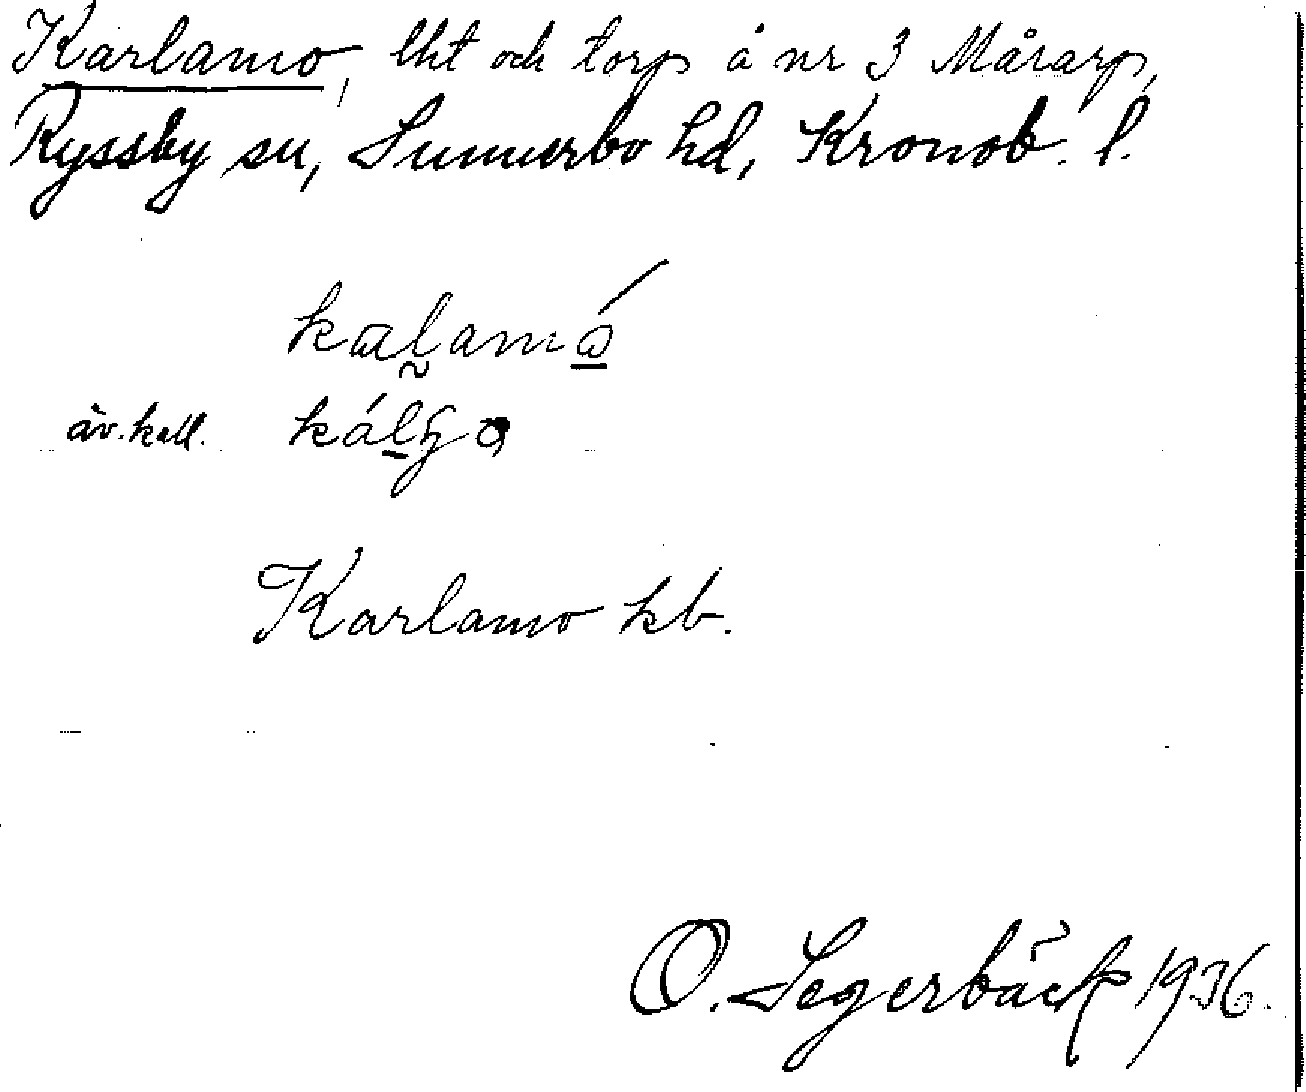 Karlamo, lht och torp å nr 3 Mårarp,
Ryssby sn, Sunnerbo hd, Kronob. l.
kalamó
äv. kall.
Karlamo kb.
O. Segerbäck 1936.